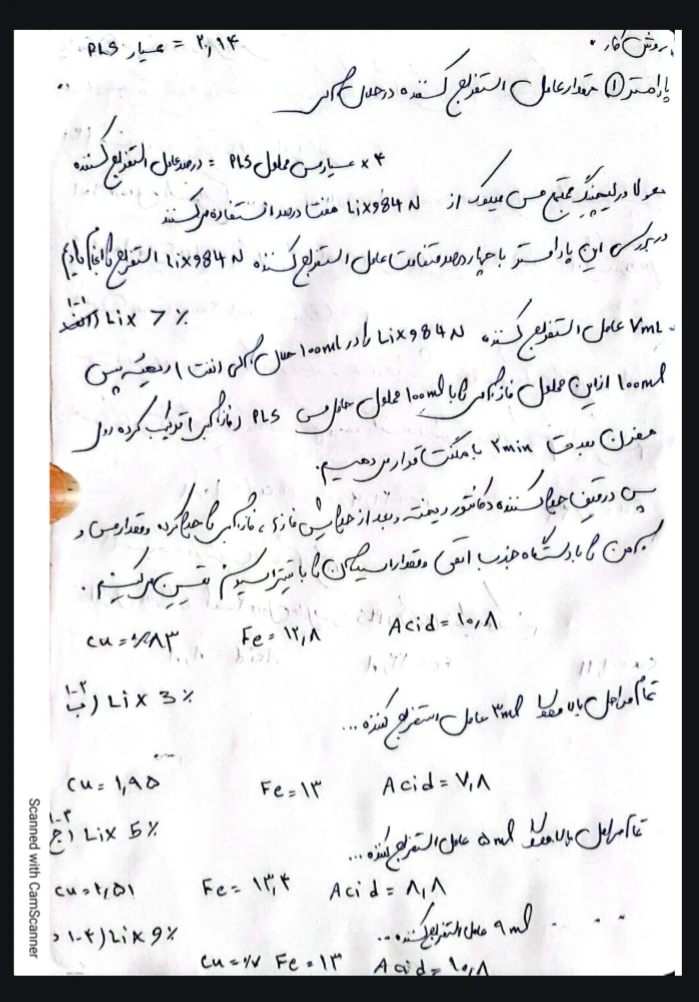 روش کار:
عیار PLS = ۲,۱۴
پارامتر ① مقدار عامل استخراج کننده در حلال آلی
۴ × عیار مس محلول PLS = درصد عامل استخراج کننده
معمولا در لیچینگ مجتمع مس از LiX984 N هفت درصد استفاده میکنند
در بررسی این پارامتر با چهار درصد متفاوت عامل استخراج کننده LiX984 N استخراج را انجام دادیم
۱-۱ الف) LiX 7 %
۷mL عامل استخراج کننده LiX984 N را در 100ml حلال آلی نفت ریخته سپس
100ml از این محلول فاز آلی را با 100ml محلول حامل مس PLS (فاز آبی) ترکیب کرده و در
مخزن به مدت ۲min با همکنت قرار می دهیم.
سپس در قیف جدا کننده دکانتور ریخته و بعد از جدایش فازی، فاز آبی را جدا کرده و مقدار مس و
آهن را با دستگاه جذب اتمی و مقدار اسید آن را با تیتراسیون تعیین می کنیم.
Cu = ۰/۸۳ Fe = ۱۲,۸ Acid = ۱۰,۸
۱-۲ ب) LiX 3 %
تمام مراحل بالا ۳ml عامل استخراج کننده ...
Cu = ۱,۹۵ Fe = ۱۳ Acid = ۷,۸
۱-۳ ج) LiX 5 %
تمام مراحل بالا ۵ml عامل استخراج کننده ...
Cu = ۱,۵۱ Fe = ۱۳,۴ Acid = ۸,۸
۱-۴) LiX 9 %
۹ml عامل استخراج کننده ...
Cu = ۰/۷ Fe = ۱۳ Acid = ۱۰,۸
Scanned with CamScanner